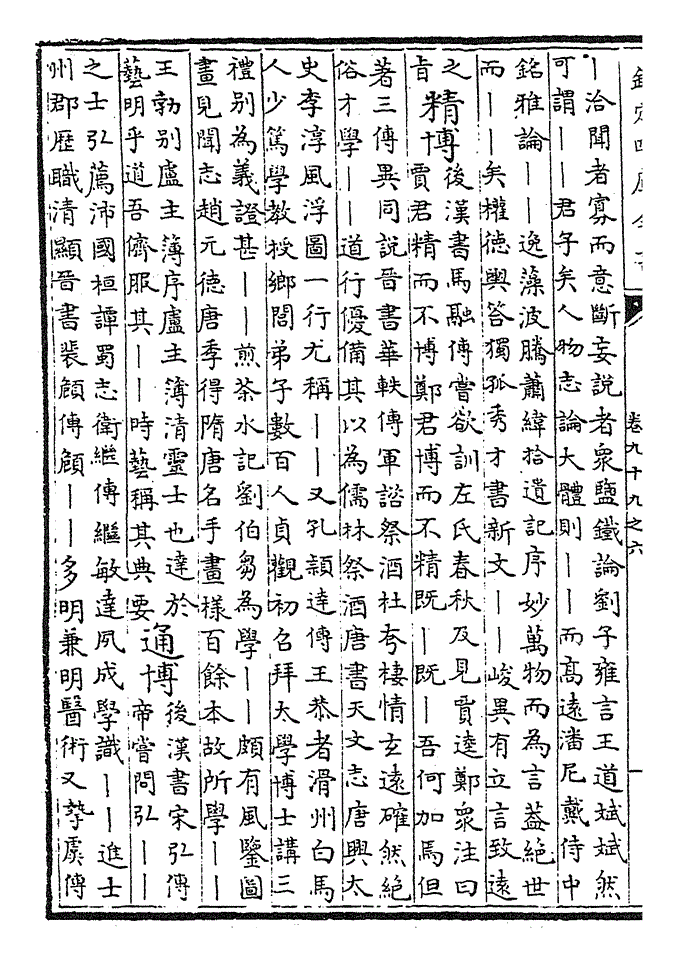 欽定四庫全書
卷九十九之六
｜洽聞者寡而意斷妄說者衆鹽鐵論劉子雍言王道斌斌然
可謂｜｜君子矣人物志論大體則｜｜而高遠潘尼戴侍中
銘雅論｜｜逸藻波騰蕭綺拾遺記序妙萬物而為言葢絕世
而｜｜矣權德輿答獨孤秀才書新文｜｜峻異有立言致遠
之
旨
精博
後漢書馬融傳嘗欲訓左氏春秋及見賈逵鄭衆注曰
賈君精而不博鄭君博而不精既｜既｜吾何加焉但
著三傳異同說晉書華軼傳軍諮祭酒杜夸棲情玄遠確然絕
俗才學｜｜道行優備其以為儒林祭酒唐書天文志唐興太
史李淳風浮圖一行尤稱｜｜又孔穎達傳王恭者滑州白馬
人少篤學教授鄉閭弟子數百人貞觀初召拜太學博士講三
禮别為義證甚｜｜煎茶水記劉伯芻為學｜｜頗有風鑒圖
畫見聞志趙元德唐季得隋唐名手畫樣百餘本故所學｜｜
王勃别盧主簿序盧主簿清靈士也達於
藝明乎道吾儕服其｜｜時藝稱其典要
通博
後漢書宋弘傳
帝嘗問弘｜｜
之士弘薦沛國桓譚蜀志衛繼傳繼敏達夙成學識｜｜進士
州郡歴職清顯晉書裴頠傳頠｜｜多明兼明醫術又摯虞傳